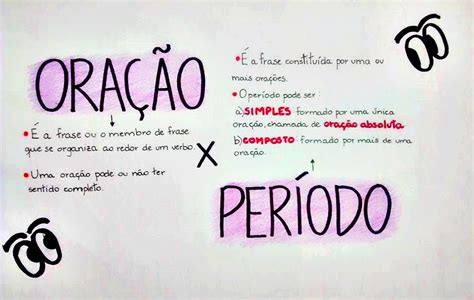 ORAÇÃO
• É a frase ou o membro de frase
que se organiza ao redor de um verbo.
• Uma oração pode ou não ter
sentido completo.
X
• É a frase constituída por uma ou
mais orações.
• O período pode ser:
a) SIMPLES formado por uma única
oração, chamada de oração absoluta.
b) COMPOSTO: formado por mais de uma
oração.
PERÍODO